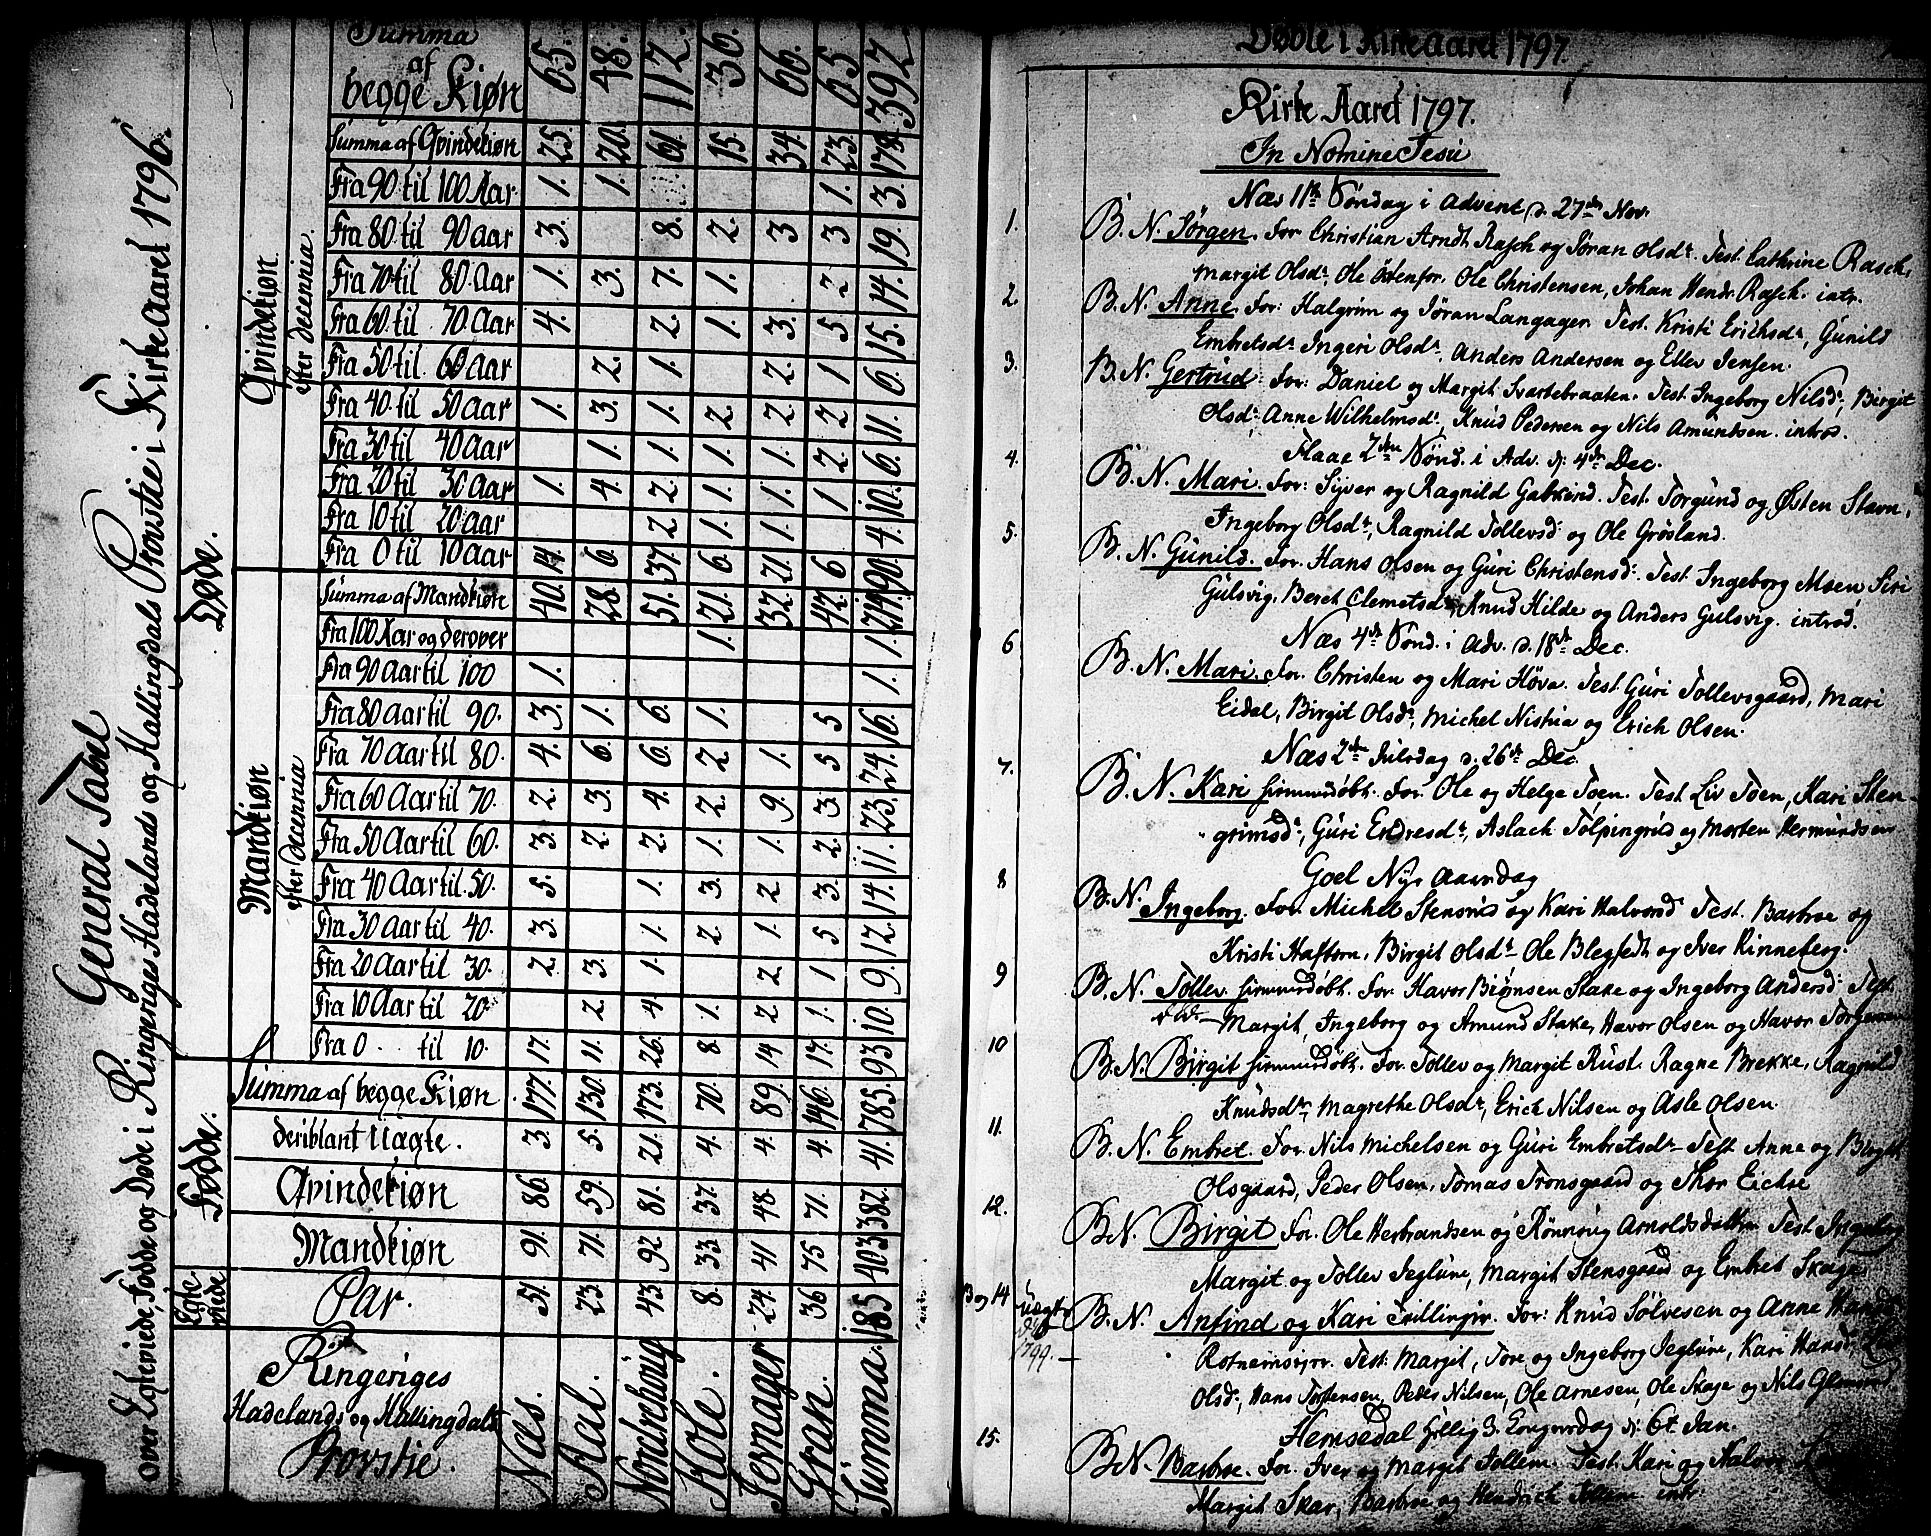 General Tabel
over Egteviede, Fødde og Døde i Ringeriges Hadelands og Hallingdals Provstie i Kirke Aaret 1796.
Døde.
Qvindekiøn
efter decennia.
Mandkiøn
efter Decennia
Fødde.
Egte viede
Summa af begge Kiøn 65. 48. 112. 36. 66. 65. 392
Summa af Qvindekiøn 25. 20. 61. 15. 34. 23. 178.
Fra 90 til 100 Aar 1. 1. 1. 3.
Fra 80 til 90 Aar 3. 8. 2. 3 3 19.
Fra 70 til 80 Aar 1. 3. 7. 1. 2 14.
Fra 60 til 70 Aar 4. 2. 1. 3. 5 15.
Fra 50 til 60 Aar 2. 1. 2. 1 6
Fra 40 til 50 Aar 1. 3. 1. 2. 2 2 11.
Fra 30 til 40 Aar 1. 1. 1. 1. 2. 6.
Fra 20 til 30 Aar 1. 4. 2. 1. 1. 1 10.
Fra 10 til 20 Aar 2 1. 1. 4.
Fra 0 til 10 Aar 14. 6. 37. 6. 21. 6 90.
Summa af Mandkiøn 40. 28. 51. 21. 32. 42. 214.
Fra 100 Aar og derover 1. 1.
Fra 90 Aar til 100 1. 1.
Fra 80 Aar til 90. 3. 1. 6. 1. 5 16.
Fra 70 Aar til 80. 4. 6. 6. 2 1. 5 24.
Fra 60 Aar til 70. 2. 3. 4. 2. 9. 3. 23.
Fra 50 Aar til 60. 3. 2. 2. 1. 1. 2. 11.
Fra 40 Aar til 50. 5. 1. 3. 2 3. 14.
Fra 30 Aar til 40. 3. 1. 2. 1. 5 12.
Fra 20 Aar til 30. 2. 3. 1. 2 1 9.
Fra 10 Aar til 20. 2 4. 1. 2 1. 10.
Fra 0 til 10. 17. 11. 26. 8. 14 17. 93
Summa af begge Kiøn 177. 130. 173. 70. 89. 146. 785.
deriblant Uægte. 3 5. 21. 4. 4. 4. 41.
Qvindekiøn 86. 59. 81. 37. 48. 71. 382.
Mandkiøn 91. 71. 92 33. 41 75 403
Par. 51. 23. 43. 8. 24. 36 185
Ringeriges
Hadelands og Hallingdals
Provstie.
Næs. Aal. Nordrehoug Hole. Jevnager Gran. Summa.
Døbte i Kirke Aaret 1797.
Kirke Aaret 1797.
In Nomine Jesu
Næs 1te Søndag i Advent d. 27de Nov.
1. B. N. Jørgen. For Christian Arndt Rasch og Jøran Olsdr. Test. Cathrine Rasch,
Margit Olsdr, Ole Østenfor. Ole Christensen, Johan Hendr. Rasch. intr.
2. B. N. Anne. For: Halgrim og Jøran Langager. Test. Kristi Erichsdr, Gunild
Embretsdr Ingeri Olsdr, Anders Andersen og Ellev Jensen.
3. B. N. Gertrud. For: Daniel og Margit Svartebraaten. Test Ingeborg Nilsdr, Birgit
Olsdr Anne Wilhelmsdr, Knud Pedersen og Nils Amundsen. introd.
Flaae 2den Sønd. i Adv. d: 4de Dec.
4. B. N. Mari. For: Syver og Ragnild Gabrund. Test. Torgund og Østen Stavn,
Ingeborg Olsdr, Ragnild Tollevsdr og Ole Grøsland.
5. B. N. Gunild. For. Hans Olsen og Guri Christensdr. Test. Ingeborg Moen Siri
Gulsvig, Beret Clemetsdr, Knud Hilde og Anders Gulsvig. introd.
Næs 4de Sønd. i Adv. d. 18de Dec.
6 B. N. Mari. For. Christen og Mari Høva. Test Guri Tollevsgaard, Mari
Eidal, Birgit Olsdr, Michel Nistua og Erich Olsen.
Næs 2den Juledag d. 26de Dec.
7. B. N. Kari hjemmedøbt. For. Ole og Helge Toen. Test Liv Toen, Kari Sten-
grimsdr, Guri Endresdr, Aslach Tolpingrud og Morten Hermundsen
Goel Nyt Aarsdag
8 B. N. Ingeborg. For. Michel Stensrud og Kari Halvorsd Test. Barbroe og
Kristi Haftorn, Birgit Olsdr Ole Blegsedt og Iver Rinneberg.
9 B. N. Tollev hjemmedøbt. For. Havor Biønsen Stake og Ingeborg Andersd: Test
Margit, Ingeborg og Amund Stake, Havor Olsen og Havor Torgersen
10 B. N. Birgit hjemmedøbt. For. Tollev og Margit Rust. Ragne Brekke, Ragnild
Knudsdr, Magrethe Olsdr, Erich Nilsen og Asle Olsen.
11. B. N. Embret. For. Nils Michelsen og Guri Embretsdr Test Anne og Birgit
Olsgaard, Peder Olsen, Tomas Tronsgaard og Thor Eickre
12. B N. Birgit For. Ole Herbrandsen og Rønnoug Arnoldsdatter Test Ingebor
Margit og Tollev Jeglum, Margit Stensgaard og Embret Skage
13 og 14 Uægte
1799. B. N. Anfind og Kari Trillinger. For: Knud Sølvesen og Anne
Test: Margit, Tore og Ingeborg Jeglum, Kari Hansd,
Olsd: Hans Torstensen, Peder Nilsen, Ole Arnesen, Ole Skage og Nils
Hemsedal hellig 3 Kongersdag d: 6te Jan.
15. B. N. Barbroe. For. Iver og Margit Tollem. Test. Kari og Halvor
Margit Skar, Barbroe og Hendrich Tolleim intr.